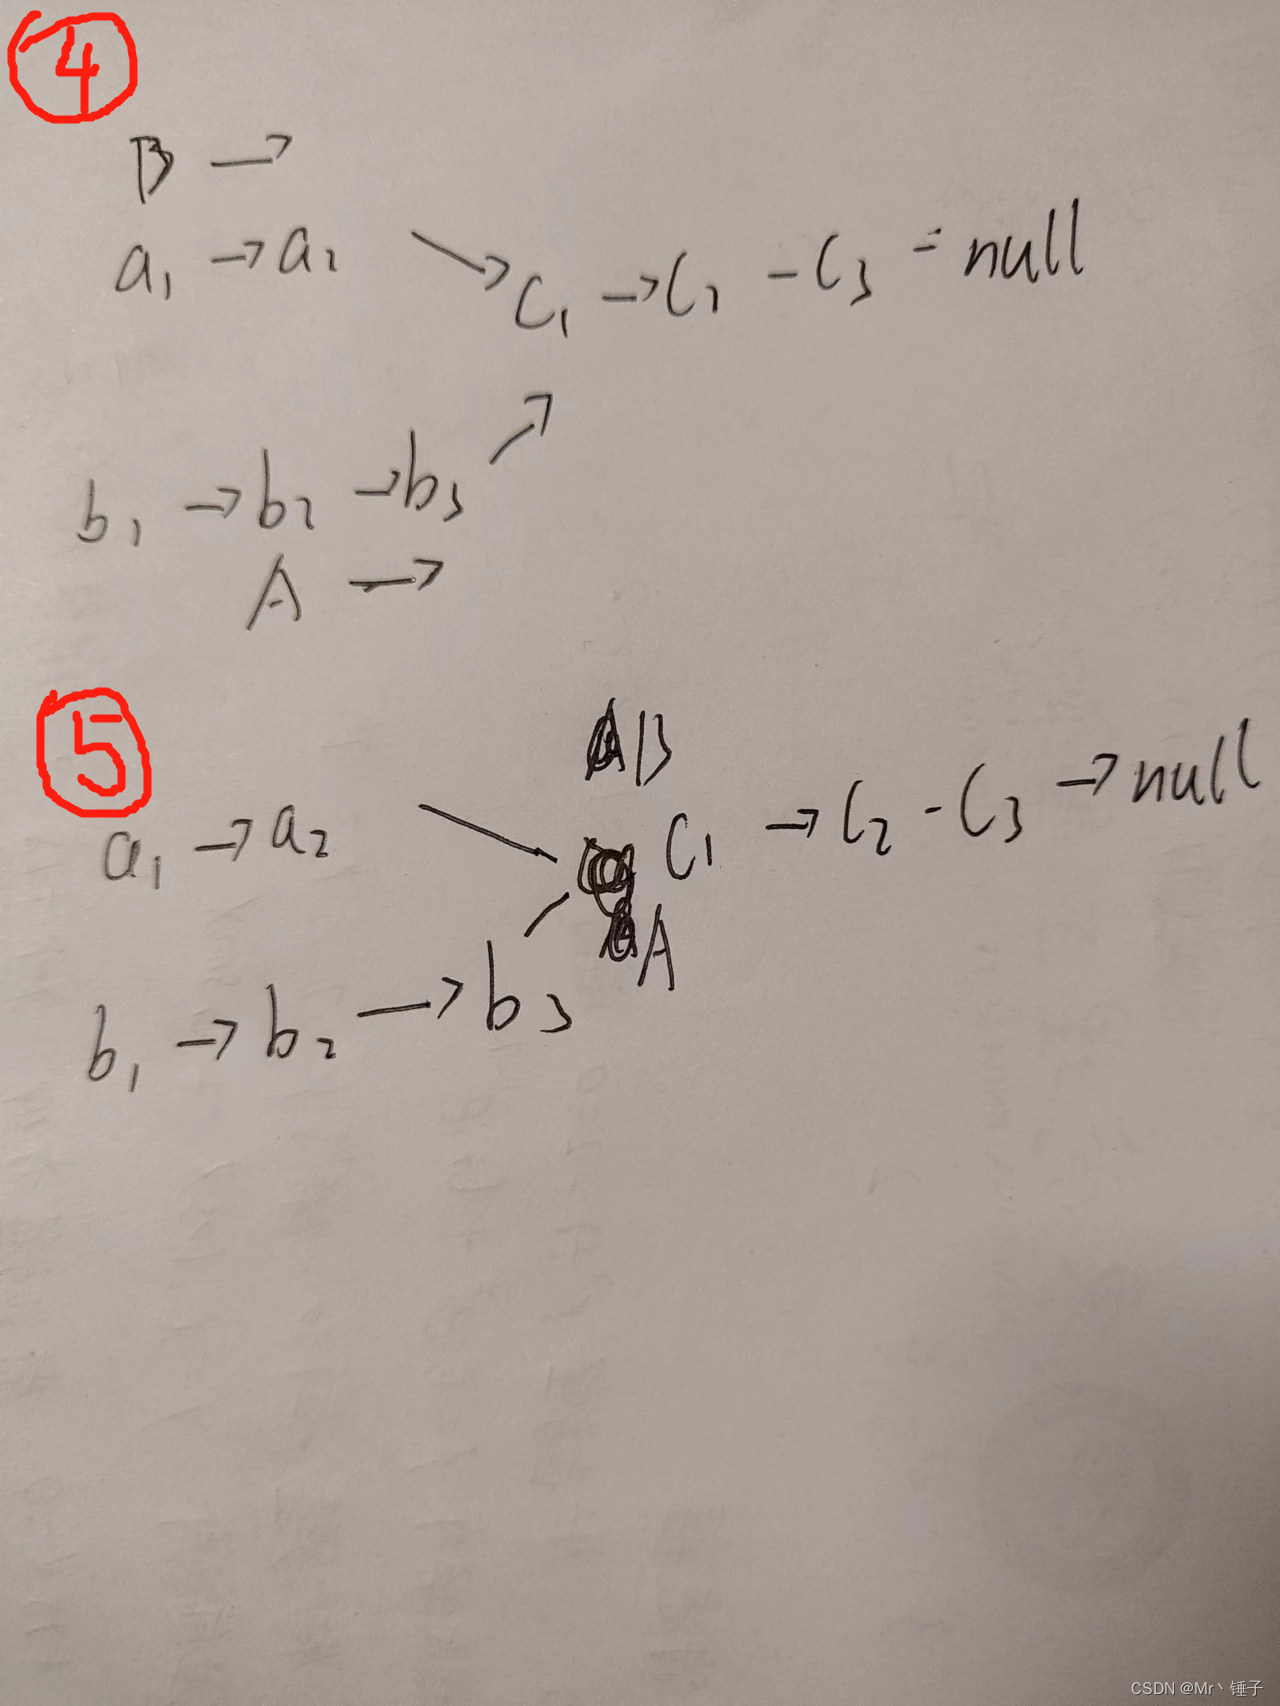 4
B →
a1 → a2 → C1 → C2 - C3 - null
b1 → b2 → b3 →
A →
5
B
a1 → a2 → C1 → C2 - C3 → null
A
b1 → b2 → b3
CSDN @Mr丶锤子